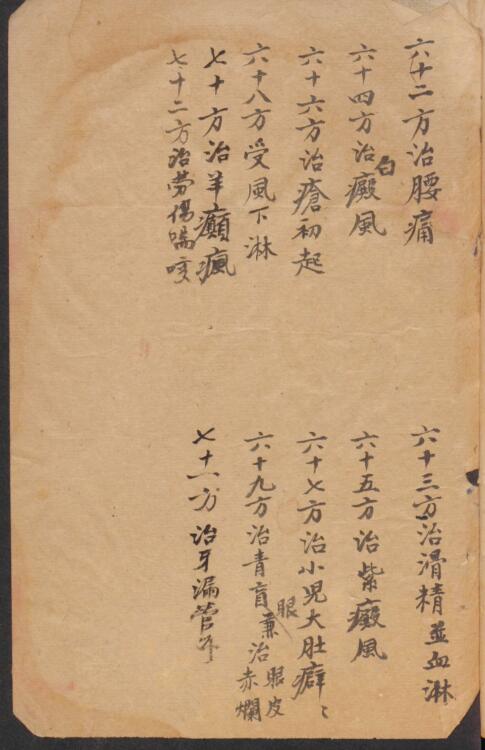 六十二方治腰痛
六十三方治滑精並血淋
六十四方治白癜風
六十五方治紫癜風
六十六方治瘡初起
六十七方治小児大肚癖
六十八方受風下淋
六十九方治青盲眼兼治眼皮赤爛
七十方治羊癲瘋
七十一方治牙漏管
七十二方治勞傷喘咳